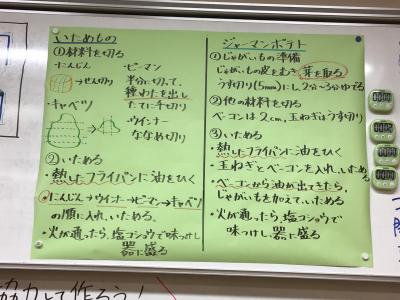 いためもの
①材料を切る
・にんじん
うすせん切り
・ピーマン
半分に切って、
種わたを出し
たてに千切り
・キャベツ
・ウインナー
ななめ切り
②いためる
・熱したフライパンに油をひく
・にんじん→ウインナー→ピーマン→キャベツ
の順に入れ、いためる。
・火が通ったら、塩コショウで味つけし
器に盛る
ジャーマンポテト
①じゃがいもの準備
じゃがいもの皮をむき、芽を取る
うす切り(5mm)にし、2分〜3分ゆでる
②他の材料を切る
ベーコンは2cm, 玉ねぎはうす切り
③いためる
・熱したフライパンに油をひく
・玉ねぎとベーコンを入れ、いためる
・ベーコンから油が出てきたら、
じゃがいもを加えて、いためる
・火が通ったら、塩コショウで
味つけし、器に盛る
協力して作ろう!